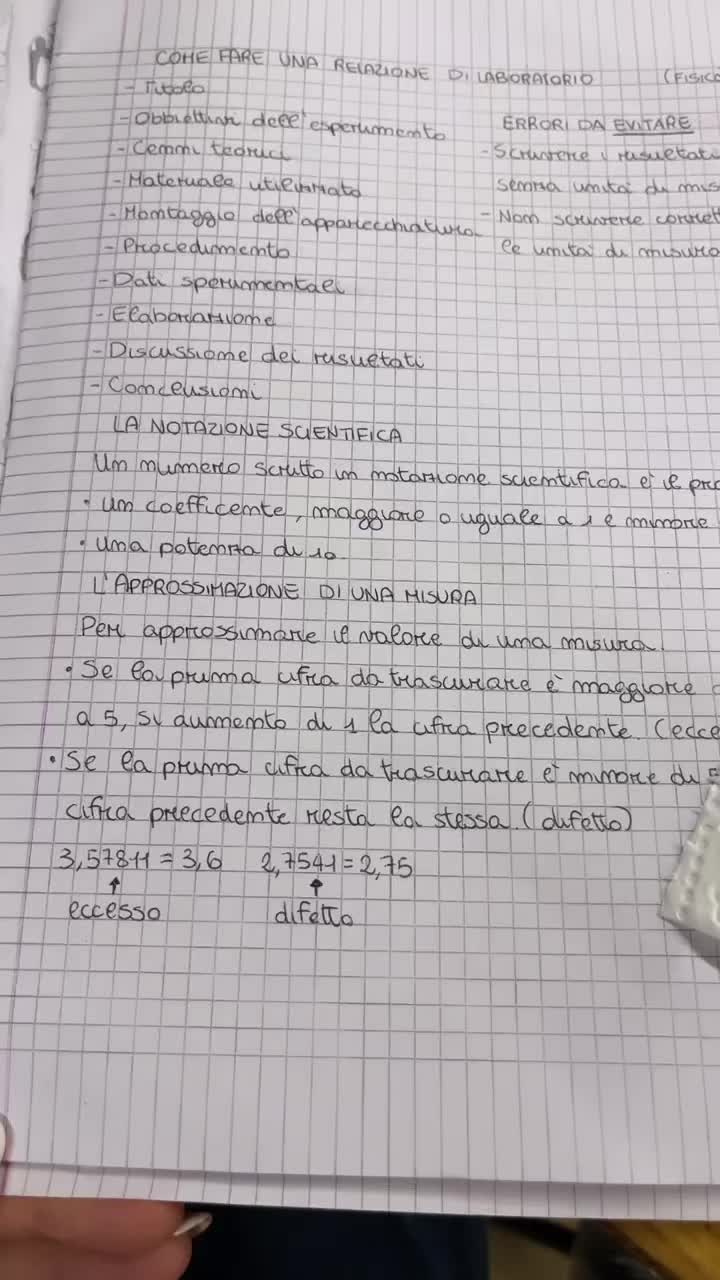 COME FARE UNA RELAZIONE DI LABORATORIO (FISICA
- Titolo
- Obbiettivi dell'esperimento
- Cenni teorici
- Materiale utilizzato
- Montaggio dell'apparecchiatura
- Procedimento
- Dati sperimentali
- Elaborazione
- Discussione dei risultati
- Conclusioni
ERRORI DA EVITARE
- Scrivere i risultati
senza unità di mis
- Non scrivere corret
le unità di misura
LA NOTAZIONE SCIENTIFICA
Un numero scritto in notazione scientifica è il pro
• un coefficente, maggiore o uguale a 1 e minore
• una potenza di 10
L'APPROSSIMAZIONE DI UNA MISURA
Per approssimare il valore di una misura:
• Se la prima cifra da trascurare è maggiore
a 5, si aumento di 1 la cifra precedente. (ecce
• Se la prima cifra da trascurare è minore di 5
cifra precedente resta la stessa. (difetto)
3,57811 = 3,6 2,7541 = 2,75
↑ ↑
eccesso difetto